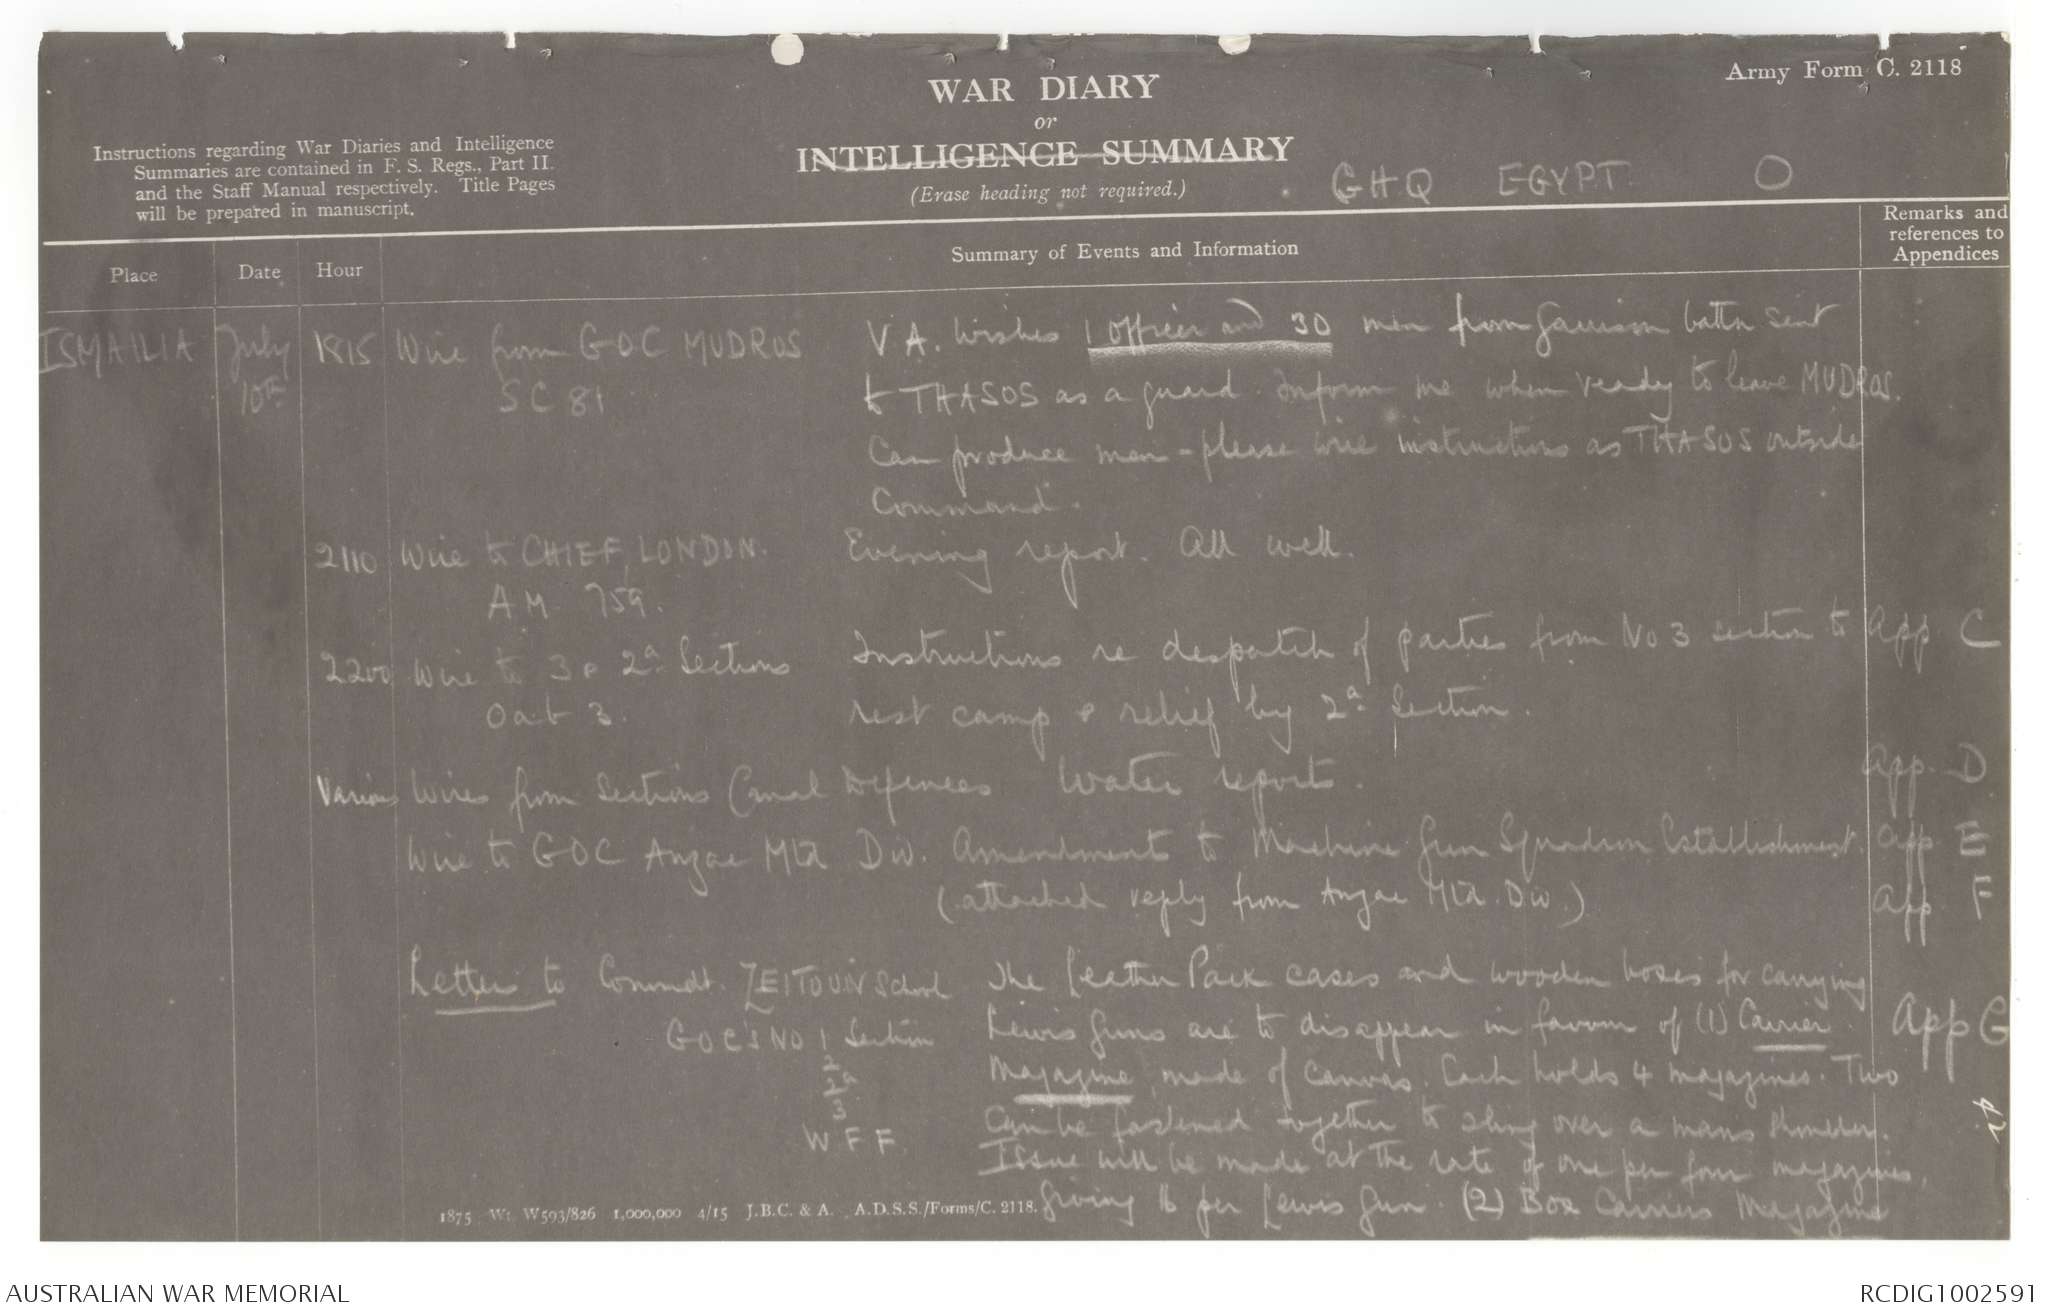 Army Form C. 2118
WAR DIARY
or
INTELLIGENCE SUMMARY
(Erase heading not required.)
Instructions regarding War Diaries and Intelligence
Summaries are contained in F. S. Regs., Part II.
and the Staff Manual respectively. Title Pages
will be prepared in manuscript.
GHQ EGYPT O
Place
Date
Hour
Summary of Events and Information
Remarks and
references to
Appendices
ISMAILIA July 1815 Wire from GOC MUDROS V A. wishes 1 officer and 30 men from Garrison battn sent
10th SC 81 to THASOS as a guard. Inform me when ready to leave MUDROS.
Can produce men - please wire instructions as THASOS outside
Command.
2110 Wire to CHIEF, LONDON. Evening report. All well.
AM 759.
2200 Wire to 3 & 2a Sections Instructions re despatch of parties from No 3 section to App C
Oab 3. rest camp & relief by 2a Section.
Various Wires from Sections Canal Defences Water reports. App. D
Wire to GOC Anzac Mtd Div. Amendments to Machine Gun Squadron Establishment. App E
(attached reply from Anzac Mtd. Div.) App F
Letters to Commdt. ZEITOUN School The Leather Pack cases and wooden boxes for carrying
GOC's No 1 Section Lewis Guns are to disappear in favour of (1) Carrier App G
2 Magazine made of canvas. Each holds 4 magazines. Two
2a
3 Can be fastened together to sling over a mans shoulder.
W F F. Issue will be made at the rate of one per four magazines,
giving 16 per Lewis Gun. (2) Box Carriers Magazine
42
1875 Wt. W593/826 1,000,000 4/15 J.B.C. & A. A.D.S.S./Forms/C. 2118.
AUSTRALIAN WAR MEMORIAL
RCDIG1002591